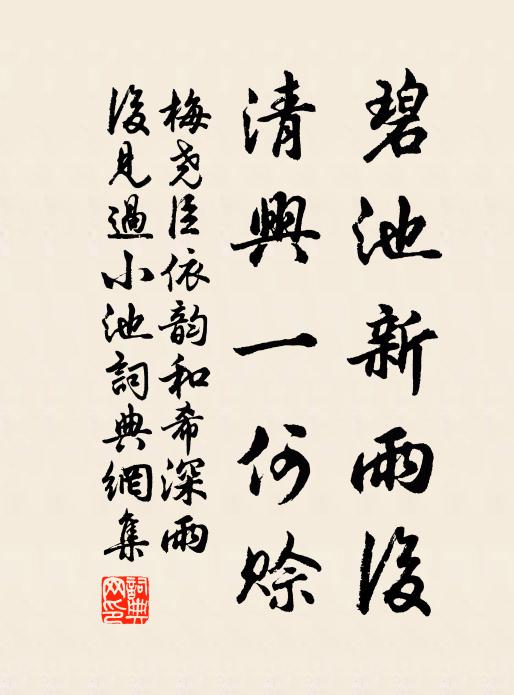 碧池新雨後
清興一何賒
梅堯臣依韵和希深雨
後見過小池詞典網集
詞典網印